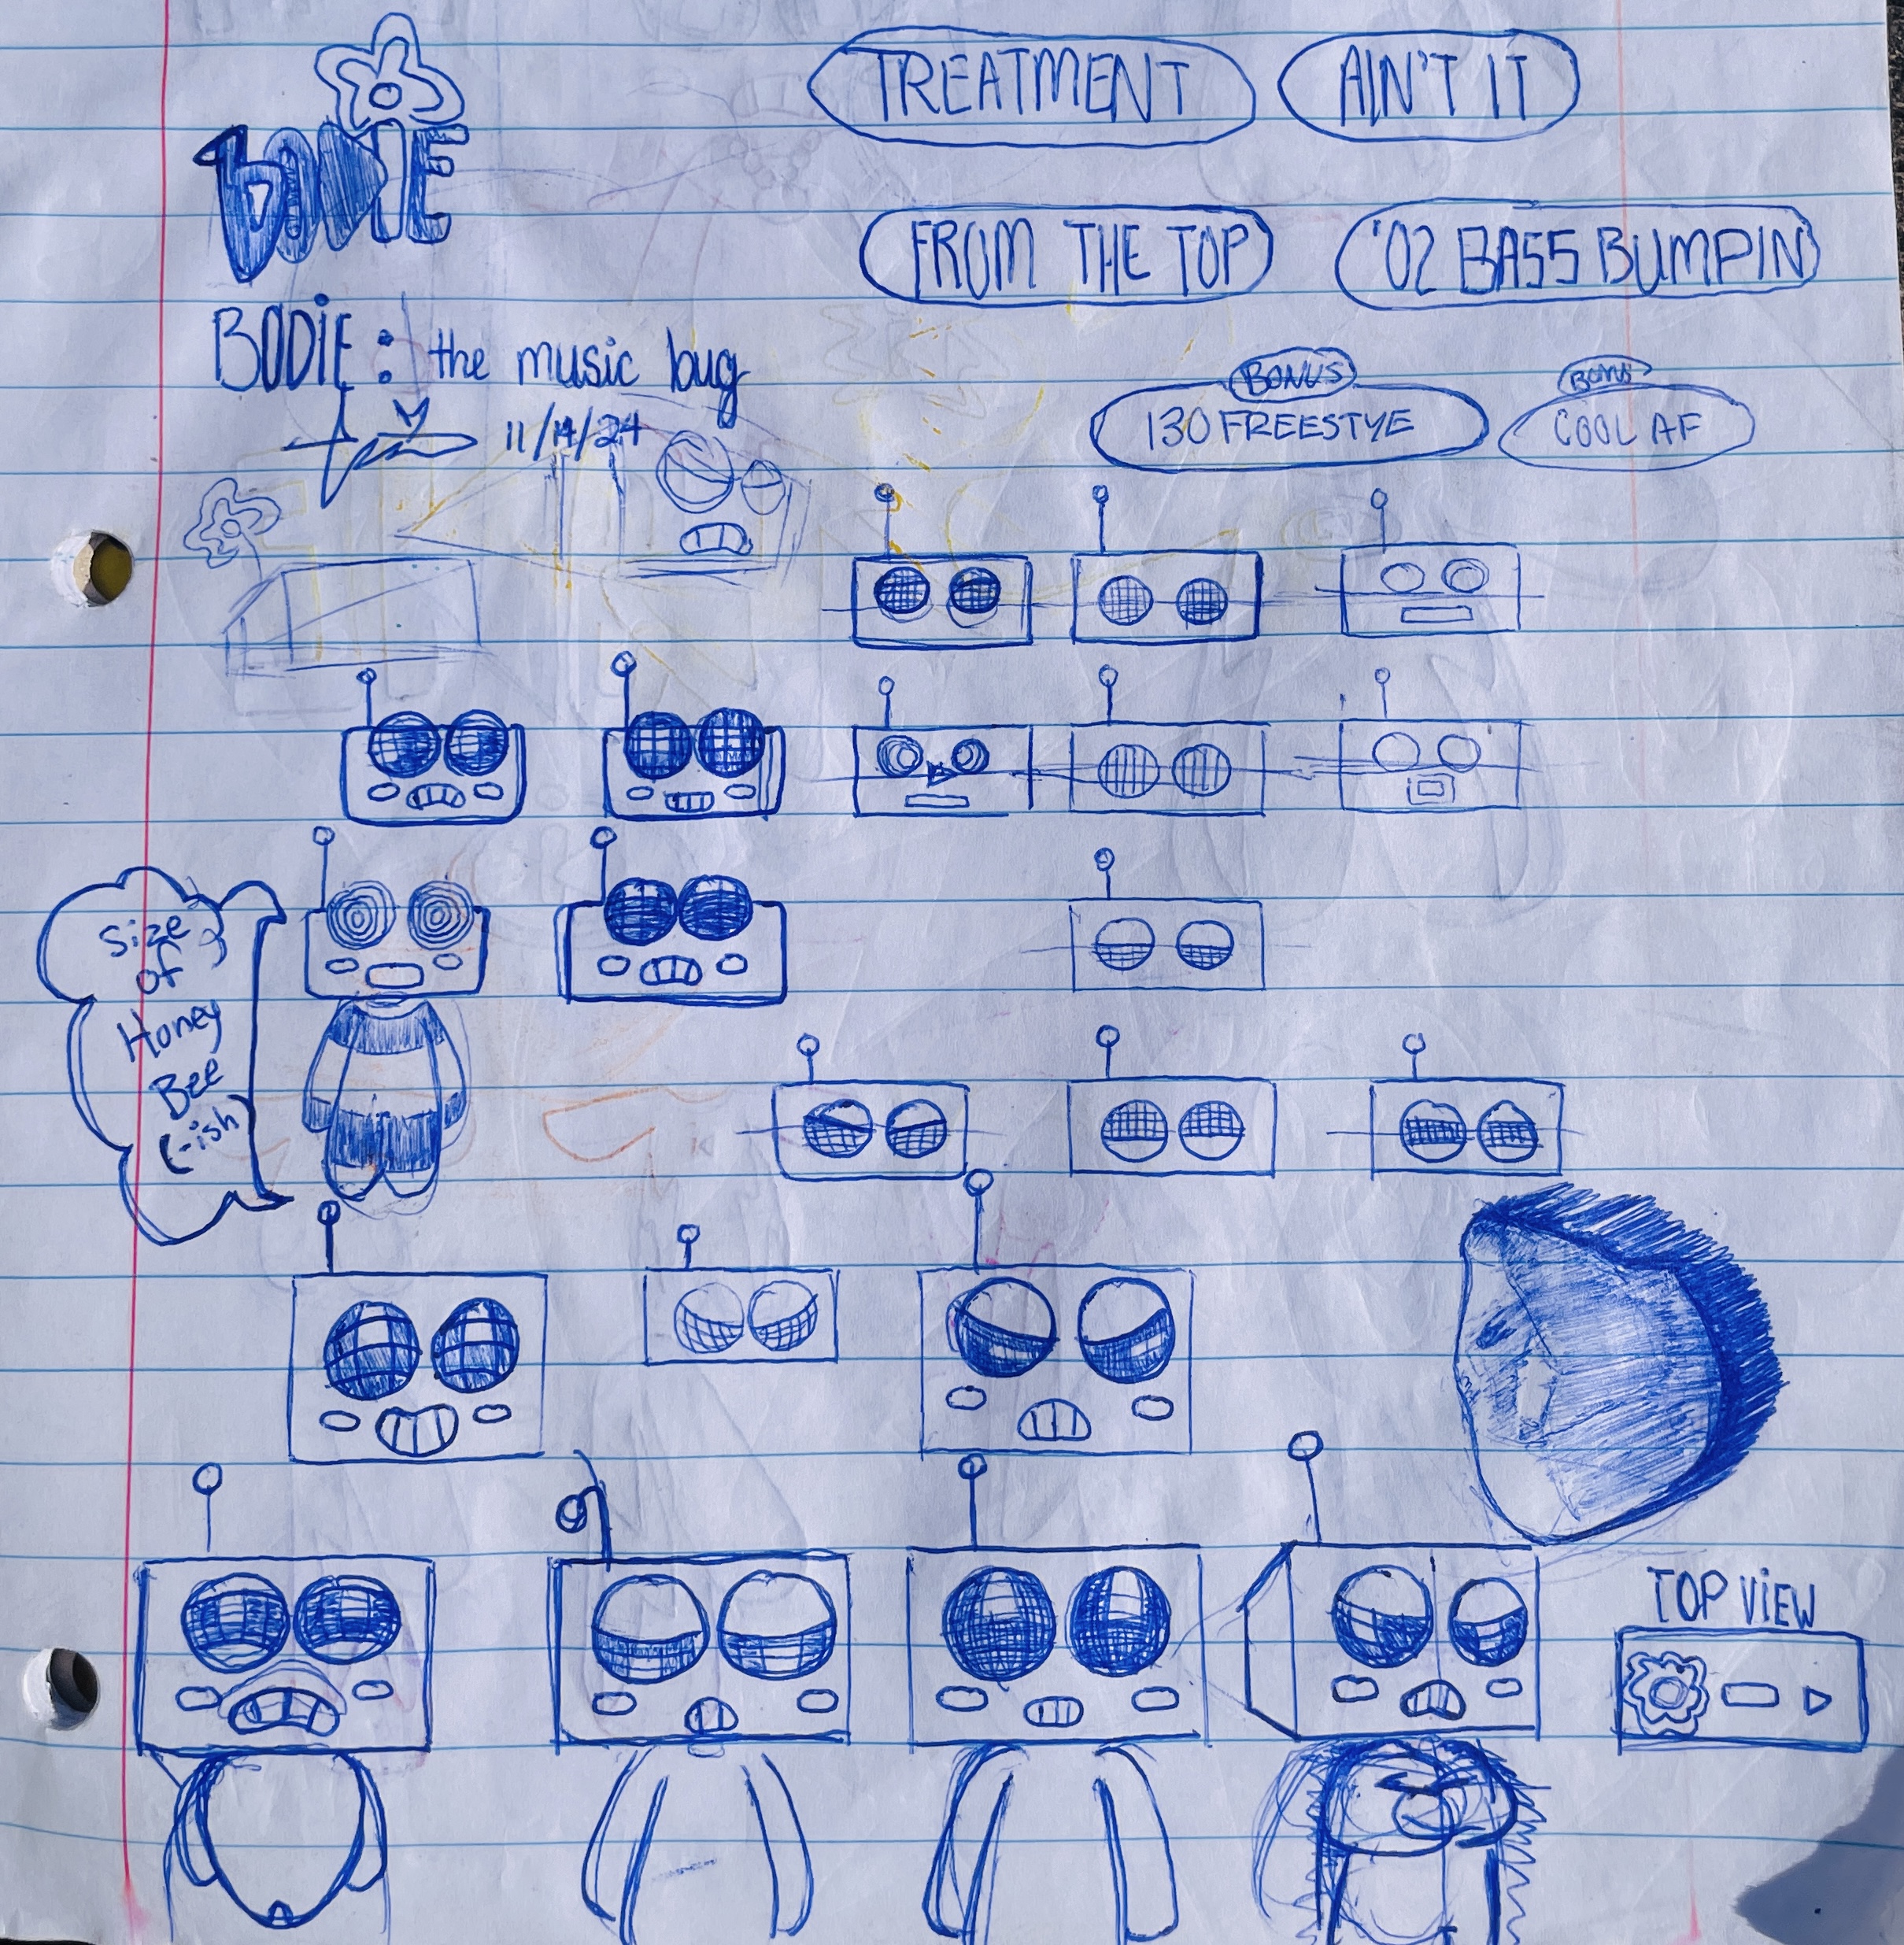 BODIE
TREATMENT
AIN'T IT
FROM THE TOP
'02 BASS BUMPIN
BODIE: the music bug
11/14/24
BONUS
130 FREESTYE
BONUS
COOL AF
Size
of
Honey
Bee
(-ish)
TOP VIEW